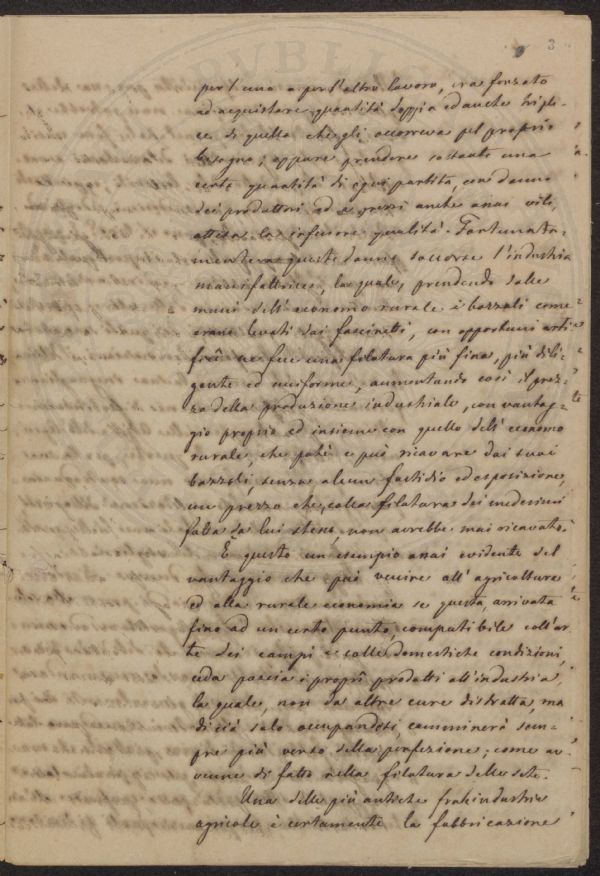 3
per l'uno o per l'altro lavoro, era forzato
ad acquistare quantità doppia ed anche tripli-
ce di quella che gli occorreva pel proprio
bisogno; oppure prendere soltanto una
certa quantità di ogni partita, con danno
dei produttori ed a prezzi anche assai vili,
attesa la inferiore qualità. Fortunata-
mente a questo danno soccorse l'industria
manifattrice, la quale, prendendo dalle
mani dell'economo rurale i bozzoli come
erano levati dai fascinetti, con opportuni arti-
fici ne fece una filatura più fina, più dili-
gente ed uniforme, aumentando così il prez-
zo della produzione industriale, con vantag-
gio proprio ed insieme con quello dell'economo
rurale, che poté e può ricavare dai suoi
bozzoli, senza alcun fastidio ed esposizione,
un prezzo che, colla filatura dei medesimi
fatta da lui stesso, non avrebbe mai ricavato.
È questo un esempio assai evidente del
vantaggio che può venire all'agricoltura
ed alla rurale economia se questa, arrivata
fino ad un certo punto, compatibile coll'ar-
te dei campi e colle domestiche condizioni,
ceda poscia i proprî prodotti all'industria,
la quale, non da altre cure distratta, ma
di ciò solo occupandosi, camminerà sem-
pre più verso della perfezione; come av-
venne di fatto nella filatura delle sete.
Una delle più antiche fra le industrie
agricole è certamente la fabbricazione